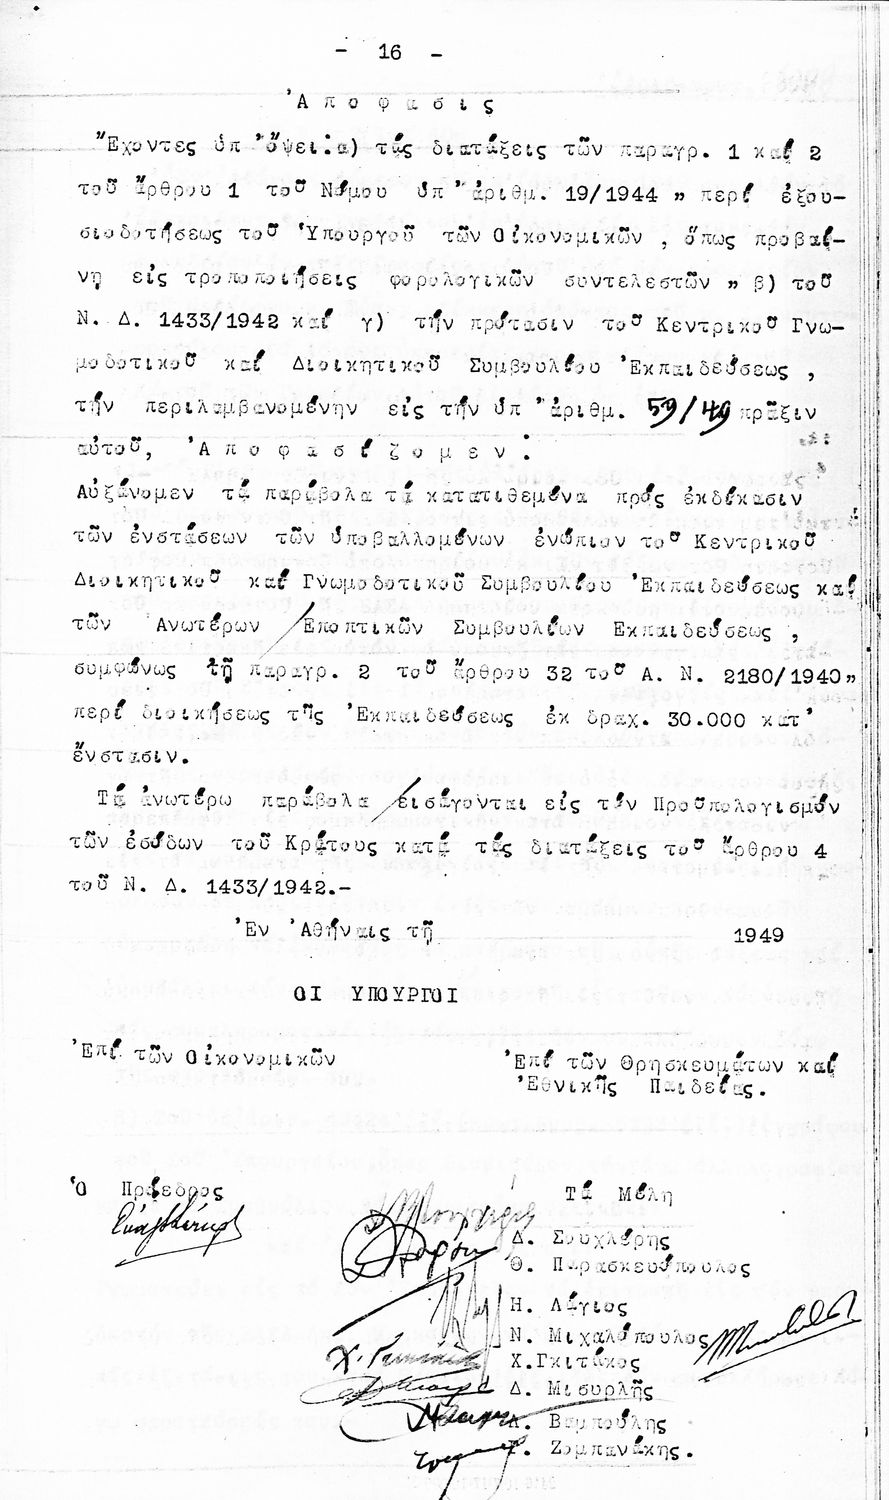 - 16 -
Ἀ π ο φ α σ ι ς
Ἔχοντες ὑπ' ὄψει:α) τάς διατάξεις τῶν παραγρ. 1 καί 2
τοῦ ἄρθρου 1 τοῦ Νόμου ὑπ' ἀριθμ. 19/1944 " περί ἐξου-
σιοδοτήσεως τοῦ Ὑπουργοῦ τῶν Οἰκονομικῶν , ὅπως προβαί-
νῃ εἰς τροποποιήσεις φορολογικῶν συντελεστῶν " β) τοῦ
Ν. Δ. 1433/1942 καί γ) τήν πρότασιν τοῦ Κεντρικοῦ Γνω-
μοδοτικοῦ καί Διοικητικοῦ Συμβουλίου Ἐκπαιδεύσεως ,
τήν περιλαμβανομένην εἰς τήν ὑπ' ἀριθμ. 59/49 πρᾶξιν
αὐτοῦ, Ἀ π ο φ α σ ί ζ ο μ ε ν :
Αὐξάνομεν τά παράβολα τά κατατιθεμένα πρός ἐκδίκασιν
τῶν ἐνστάσεων τῶν ὑποβαλλομένων ἐνώπιον τοῦ Κεντρικοῦ
Διοικητικοῦ καί Γνωμοδοτικοῦ Συμβουλίου Ἐκπαιδεύσεως καί
τῶν Ἀνωτέρων / Ἐποπτικῶν Συμβουλίων Ἐκπαιδεύσεως ,
συμφώνως τῇ παραγρ. 2 τοῦ ἄρθρου 32 τοῦ Α. Ν. 2180/1940 "
περί διοικήσεως τῆς Ἐκπαιδεύσεως ἐκ δραχ. 30.000 κατ'
ἔνστασιν.
Τά ἀνωτέρω παράβολα / εἰσάγονται εἰς τόν Προϋπολογισμόν
τῶν ἐσόδων τοῦ Κράτους κατά τάς διατάξεις τοῦ ἄρθρου 4
τοῦ Ν. Δ. 1433/1942.-
Ἐν Ἀθήναις τῇ 1949
ΟΙ ΥΠΟΥΡΓΟΙ
Ἐπί τῶν Οἰκονομικῶν Ἐπί τῶν Θρησκευμάτων καί
Ἐθνικῆς Παιδείας.
Ὁ Πρόεδρος Τά Μέλη
Δ. Σουχλέρης
Θ. Παρασκευόπουλος
Η. Λάγιος
Ν. Μιχαλόπουλος
Χ.Γκιτάκος
Δ. Μισυρλῆς
Βαμπούλης
Ζομπανάκης.